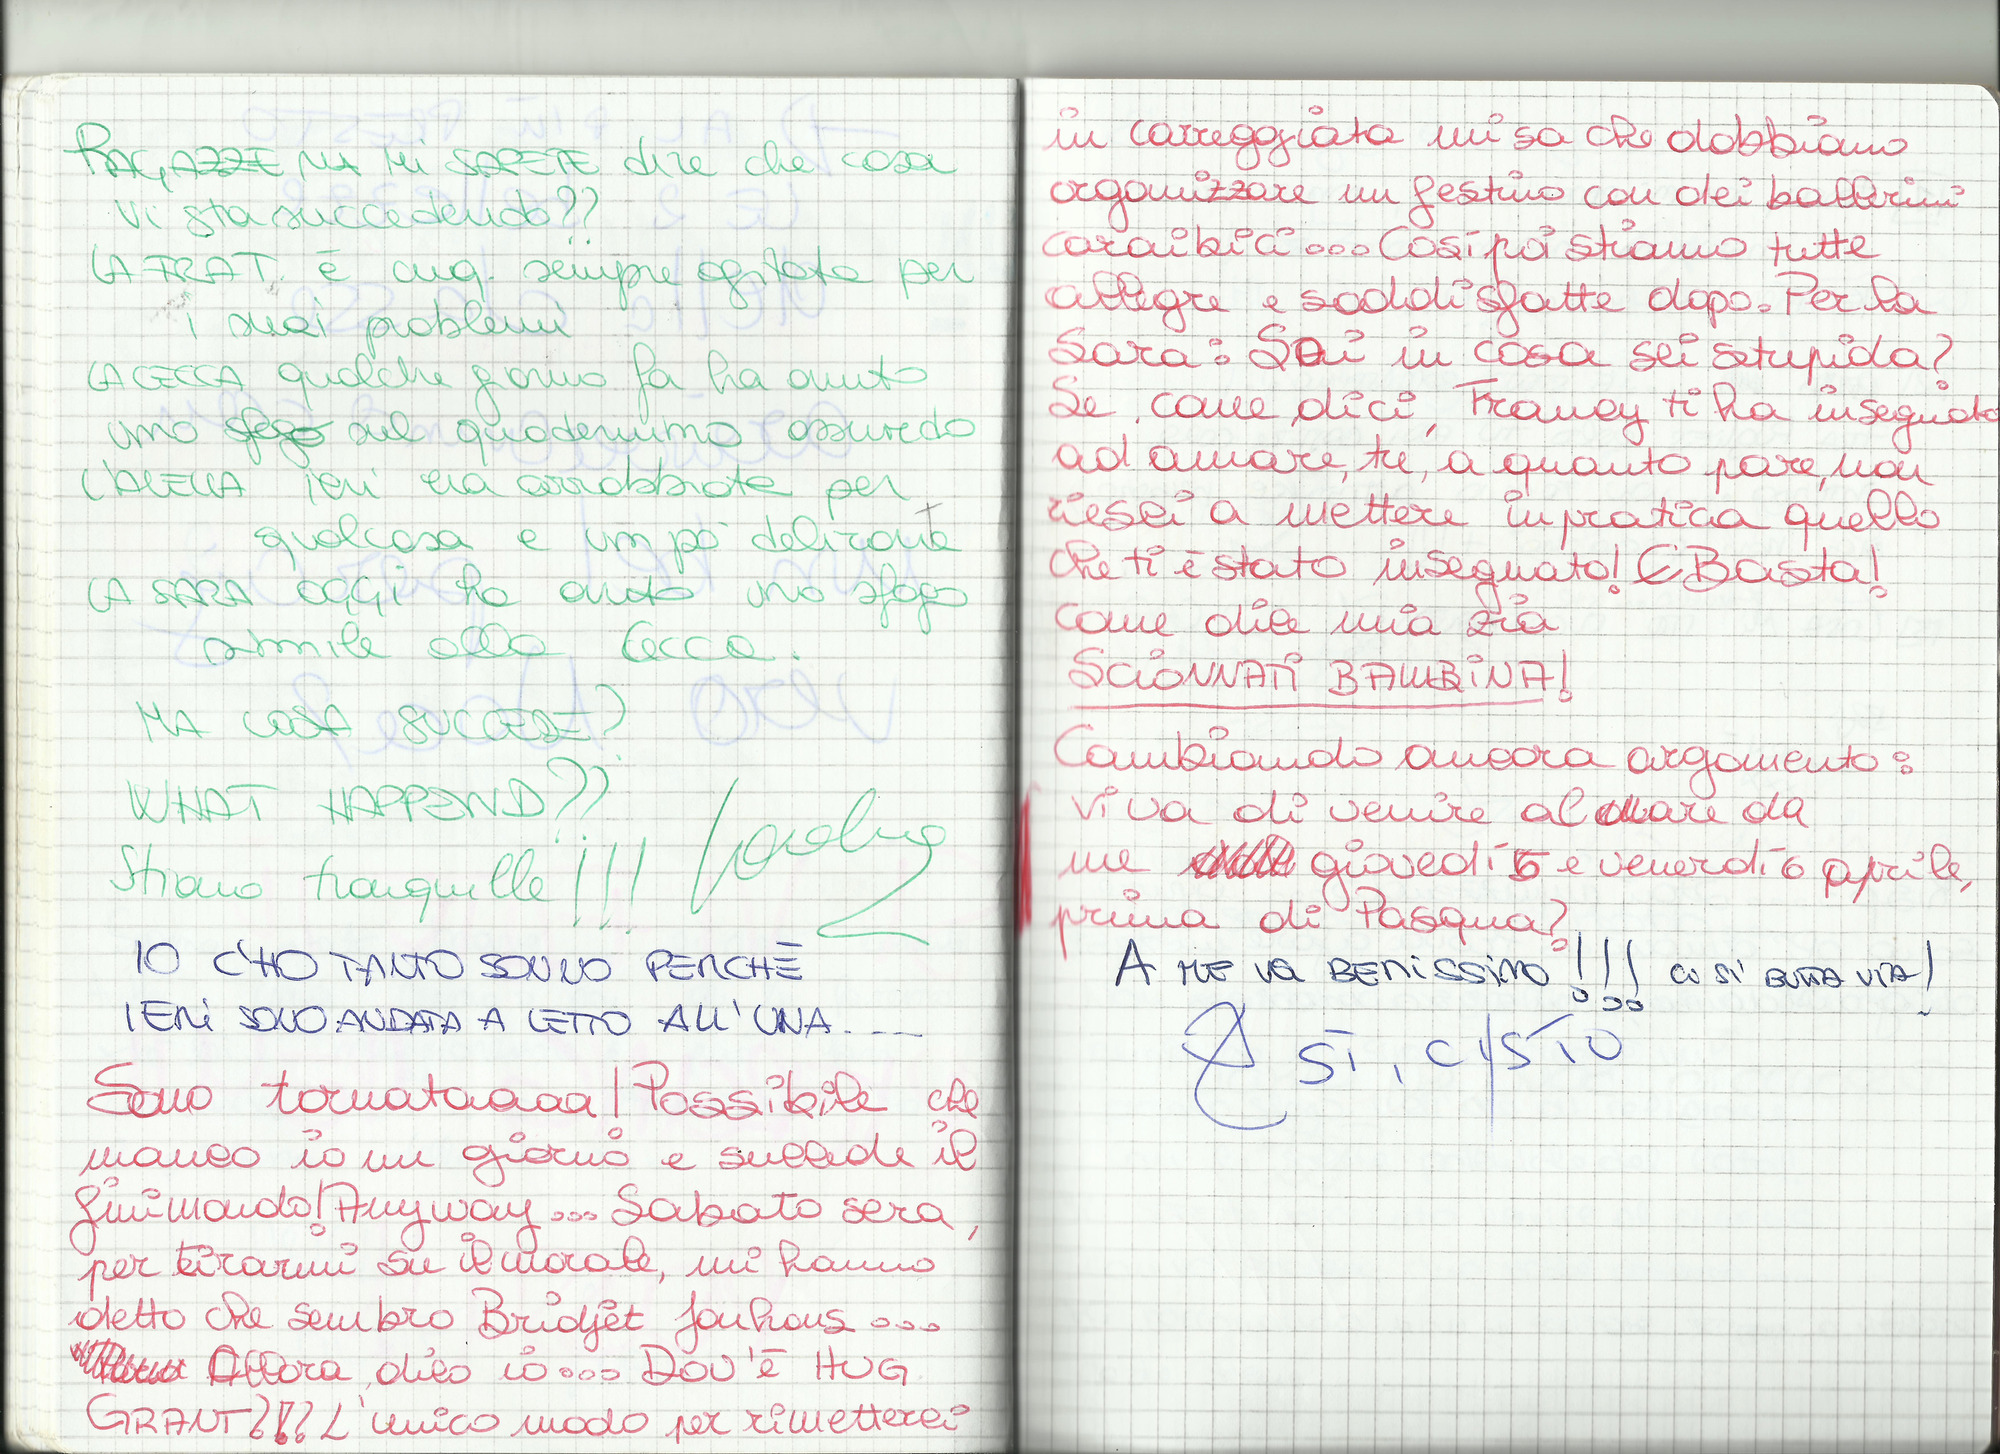 RAGAZZE MA MI SAPETE dire che cosa
vi sta succedendo??
LA FRAT. è cmq. sempre agitata per
i suoi problemi
LA CECCA qualche giorno fa ha avuto
uno sfogo sul quadernino assurdo
L'ALELLA ieri era arrabbiata per
qualcosa e un po' delirante
LA SARA OGGI ha avuto uno sfogo
simile alla Cecca.
MA COSA SUCCEDE?
WHAT HAPPEND??
Stiamo tranquille!!!
IO C'HO TANTO SONNO PERCHÈ
IERI SONO ANDATA A LETTO ALL'UNA....
Sono tornataaaa! Possibile che
manco io un giorno e succede il
finimondo! Anyway... Sabato sera,
per tirarmi su il morale, mi hanno
detto che sembro Bridjet Jonhons...
Allora, dico io... DOV'È HUG
GRANT?!?! L'unico modo per rimetterci
in carreggiata mi sa che dobbiamo
organizzare un festino con dei ballerini
caraibici... Così poi stiamo tutte
allegre e soddisfatte dopo. Per la
Sara: Sai in cosa sei stupida?
Se, come dici, Francy ti ha insegnato
ad amare, tu, a quanto pare, non
riesci a mettere in pratica quello
che ti è stato insegnato! E Basta!
come dice mia zia
SCIONNATI BAMBINA!
Cambiando ancora argomento:
vi va di venire al mare da
me giovedì 5 e venerdì 6 aprile,
prima di Pasqua?
A ME VA BENISSIMO!!! CO SI' BUTTA VIA!
SÌ, CI STO